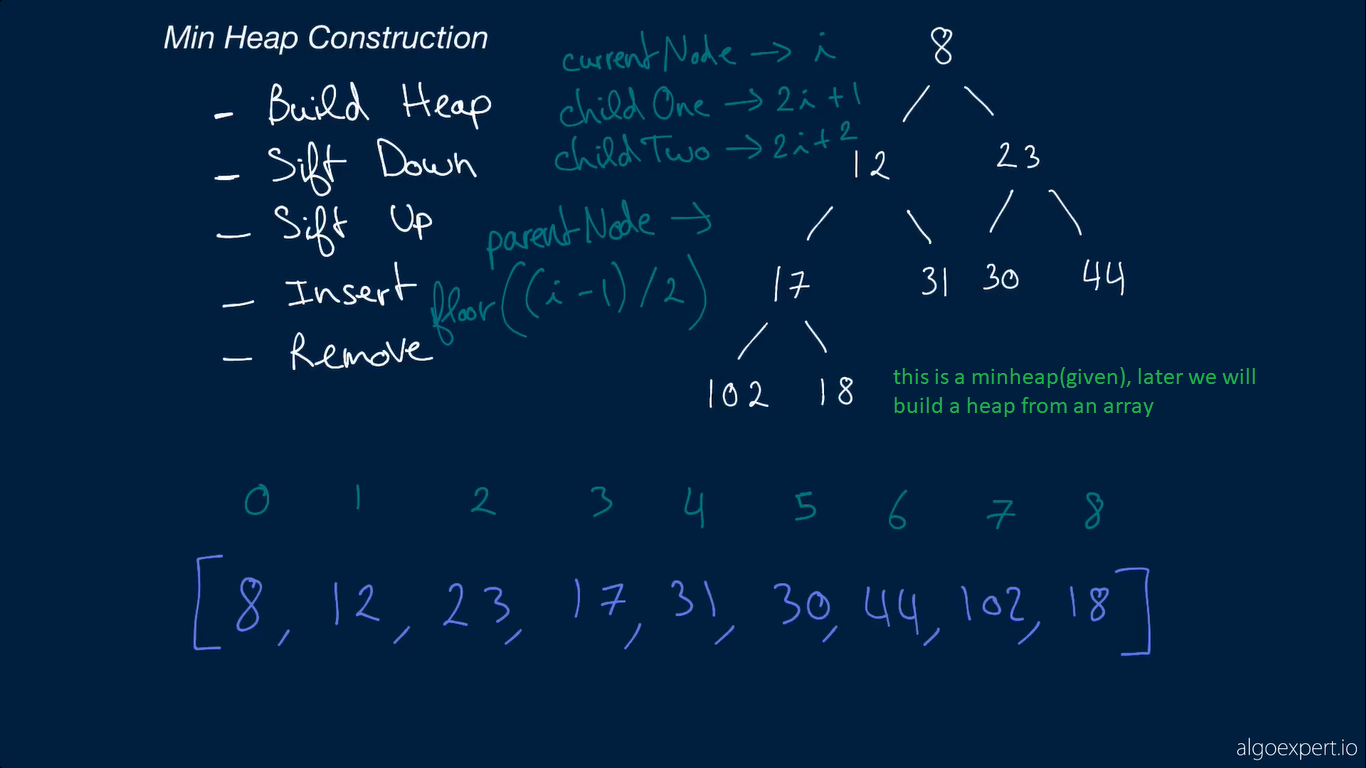 Min Heap Construction
- Build Heap
- Sift Down
- Sift Up
- Insert
- Remove
currentNode → i
childOne → 2i+1
childTwo → 2i+2
parentNode →
floor((i-1)/2)
8
12 23
17 31 30 44
102 18
this is a minheap(given), later we will
build a heap from an array
0 1 2 3 4 5 6 7 8
[8, 12, 23, 17, 31, 30, 44, 102, 18]
algoexpert.io